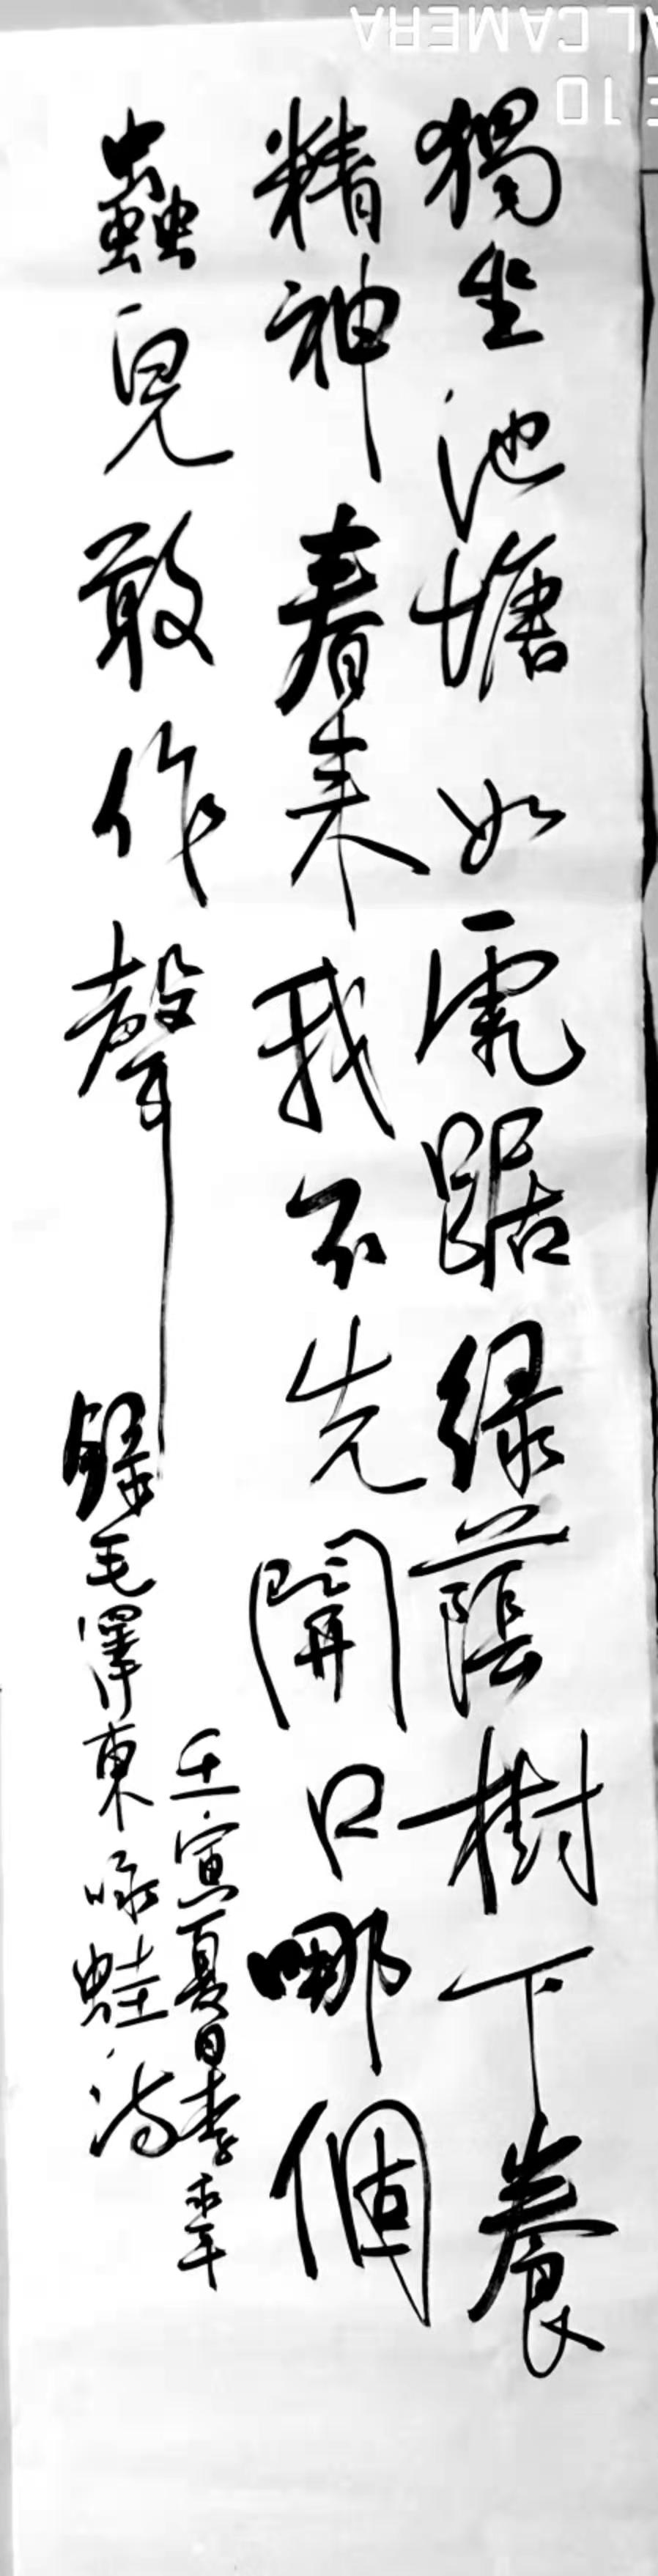 獨坐池塘如虎踞綠蔭樹下養
精神春來我不先開口哪個
蟲兒敢作聲
錄毛澤東咏蛙詩
壬寅夏日李
AL CAMERA